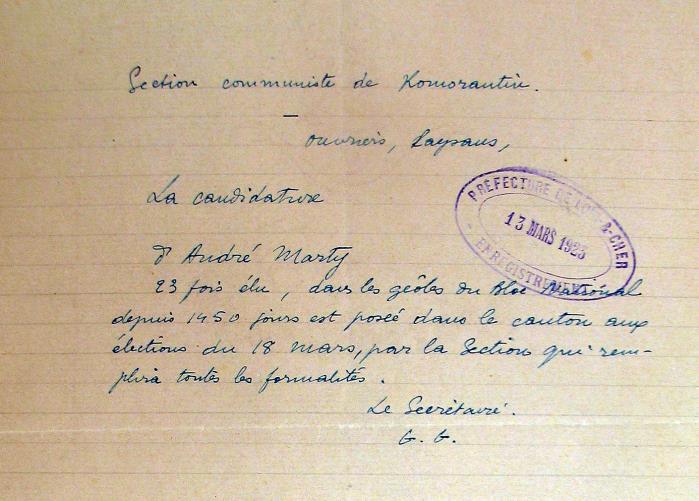 Section communiste de Romorantin.
Ouvriers, Paysans,
La candidature
d'André Marty
23 fois élu, dans les geôles du Bloc National
depuis 1450 jours est posée dans le canton aux
élections du 18 Mars, par la Section qui rem-
plira toutes les formalités.
Le Secrétaire.
G. G.
PRÉFECTURE DE LOIR-&-CHER
13 MARS 1923
ENREGISTREMENT